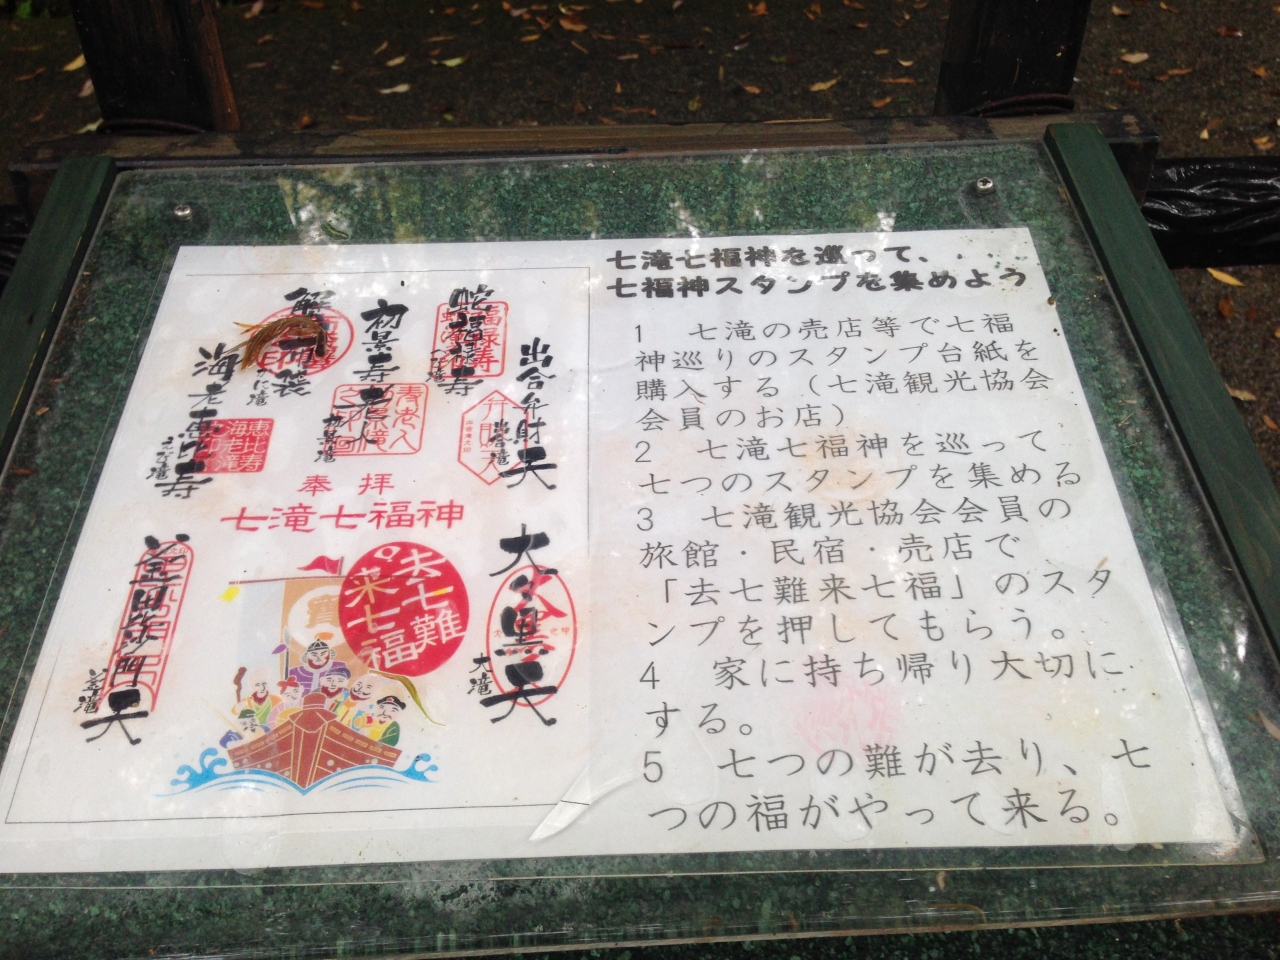 七滝七福神を巡って、....
七福神スタンプを集めよう
1　七滝の売店等で七福
神巡りのスタンプ台紙を
購入する（七滝観光協会
会員のお店）
2　七滝七福神を巡って
七つのスタンプを集める
3　七滝観光協会会員の
旅館・民宿・売店で
「去七難来七福」のスタ
ンプを押してもらう。
4　家に持ち帰り大切に
する。
5　七つの難が去り、七
つの福がやって来る。
出合弁財天
出合滝
蛇福禄寿
福禄寿
初景寿老人
初景滝
海老恵比寿
えび滝
恵比寿
海老滝
奉拝
七滝七福神
去七難
来七福
寶
大々黒天
大滝
釜滝